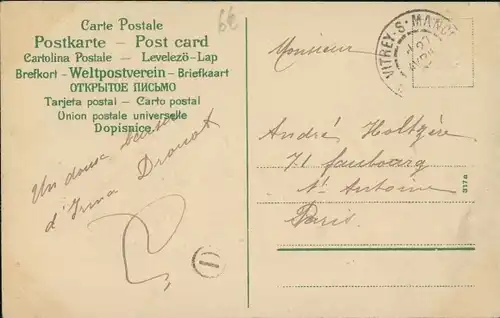 Carte Postale
Postkarte – Post card
Cartolina Postale – Levelező-Lap
Brefkort – Weltpostverein – Briefkaart
ОТКРЫТОЕ ПИСЬМО
Tarjeta postal – Carto postal
Union postale universelle
Dopisnice
Un doux baiser
d'Irma Drouot
62
Monsieur
VITREY-S-MANCE
André Holtgère
71 faubourg
St Antoine
Paris
317a